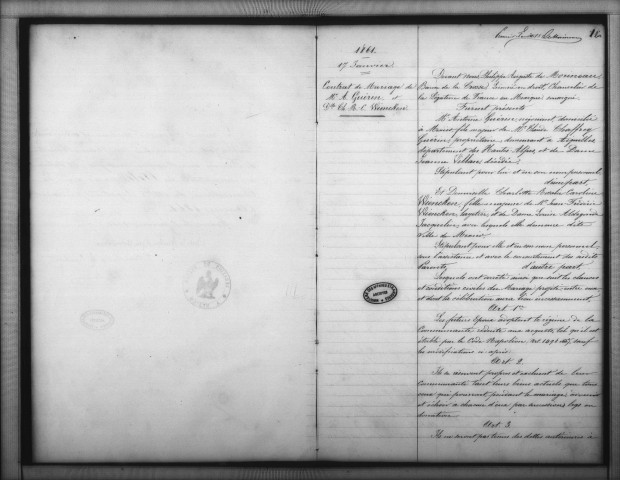 1861.
17 Janvier
Contrat de Mariage de
Mr A. Guérin et
Dlle Ch. R. C. Wenneken
16
Devant nous Philippe Auguste de Monneau
Baron de la Licencié en droit, Chancelier de
la Légation de France au Mexique soussigné.
Furent présents
Mr Antoine Guérin, négociant, domicilié
à Mexico fils majeur de Mr Claude
Guérin, propriétaire, demeurant à Aiguilles
département des Hautes Alpes, et de Dame
Jeanne décédée;
Stipulant pour lui et en son nom personnel,
d'une part,
Et Demoiselle Charlotte Rosalie Caroline
Wenneken, fille majeure de Mr Jean Frédéric
Wenneken, et de Dame Louise Aldegonde
Jacqueline, avec lesquels elle demeure dite
Ville de Mexico;
Stipulant pour elle et en son nom personnel,
sous l'assistance et avec le consentement des susdits
Parents, d'autre part,
Lesquels ont arrêté ainsi que suit les clauses
et conditions civiles du Mariage projeté entre eux
et dont la célébration aura lieu incessamment.
Art. 1er
Les futurs Epoux adoptent le régime de la
Communauté réduite aux acquêts, tel qu'il est
établi par le Code Napoléon sauf
les modifications ci-après.
Art. 2.
Ils se réservent propres et excluent de leur
Communauté tant leurs biens actuels que tous
ceux qui pourront, pendant le mariage, advenir
et échoir à chacun d'eux par successions, legs ou
donations.
Art. 3
Ils ne seront pas tenus des dettes antérieures à